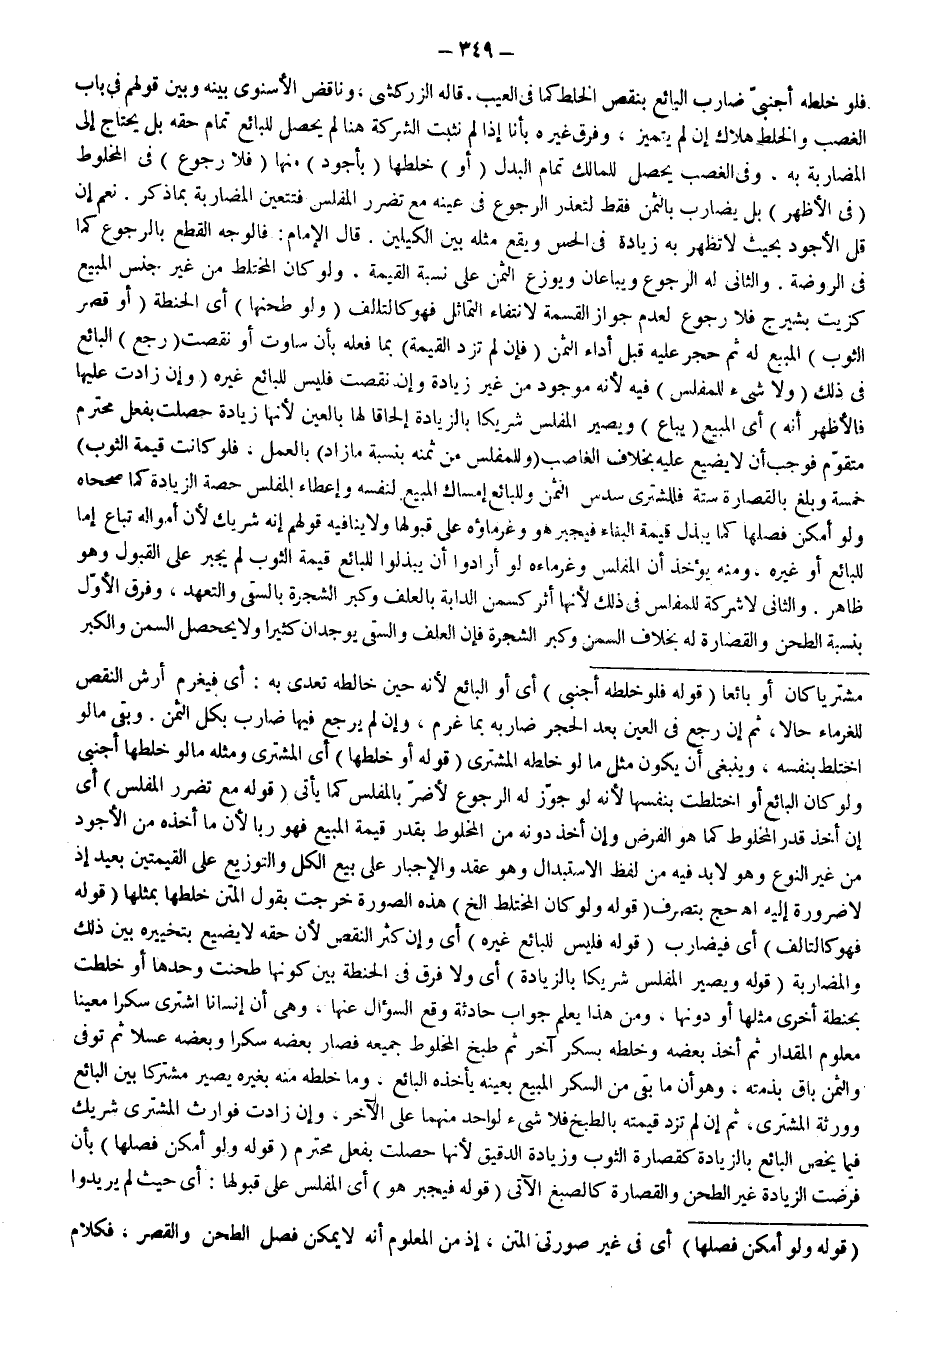 – ٣٤٩ –
فلو خلطه أجنبيّ ضارب البائع بنقص الخلط كما فى العيب. قاله الزركشى ، وناقض الأسنوى بينه وبين قولهم فى باب
الغصب والخلط هلاك إن لم يتميز ، وفرق غيره بأنا إذا لم نثبت الشركة هنا لم يحصل للبائع تمام حقه بل يحتاج إلى
المضاربة به . وفى الغصب يحصل للمالك تمام البدل ( أو ) خلطها ( بأجود ) منها ( فلا رجوع ) فى المخلوط
( فى الأظهر ) بل يضارب بالثمن فقط لتعذر الرجوع فى عينه مع تضرر المفلس فتتعين المضاربة بماذكر . نعم إن
قل الأجود بحيث لاتظهر به زيادة فى الحس ويقع مثله بين الكيلين . قال الإمام : فالوجه القطع بالرجوع كما
فى الروضة . والثانى له الرجوع ويباعان ويوزع الثمن على نسبة القيمة . ولو كان المختلط من غير جنس المبيع
كزيت بشيرج فلا رجوع لعدم جواز القسمة لانتفاء التماثل فهو كالتالف ( ولو طحنها ) أى الحنطة ( أو قصر
الثوب ) المبيع له ثم حجر عليه قبل أداء الثمن ( فإن لم تزد القيمة) بما فعله بأن ساوت أو نقصت( رجع ) البائع
فى ذلك ( ولا شىء للمفلس ) فيه لأنه موجود من غير زيادة وإن نقصت فليس للبائع غيره ( وإن زادت عليها
فالأظهر أنه ) أى المبيع( يباع ) ويصير المفلس شريكا بالزيادة إلحاقا لها بالعين لأنها زيادة حصلت بفعل محترم
متقوّم فوجب أن لايضيع عليه بخلاف الغاصب(وللمفلس من ثمنه بنسبة مازاد) بالعمل ، فلو كانت قيمة الثوب)
خمسة وبلغ بالقصارة ستة فللمشترى سدس الثمن وللبائع إمساك المبيع لنفسه وإعطاء المفلس حصة الزيادة كما صححاه
ولو أمكن فصلها كما يبذل قيمة البناء فيجبر هو وغرماؤه على قبولها ولاينافيه قولهم إنه شريك لأن أمواله تباع إما
للبائع أو غيره ، ومنه يؤخذ أن المفلس وغرماءه لو أرادوا أن يبذلوا للبائع قيمة الثوب لم يجبر على القبول وهو
ظاهر . والثانى لاشركة للمفلس فى ذلك لأنها أثر كسمن الدابة بالعلف وكبر الشجرة بالسقى والتعهد ، وفرق الأوّل
بنسبة الطحن والقصارة له بخلاف السمن وكبر الشجرة فإن العلف والسقى يوجدان كثيرا ولايحصل السمن والكبر
مشتريا كان أو بائعا ( قوله فلو خلطه أجنبي ) أى أو البائع لأنه حين خالطه تعدى به : أى فيغرم أرش النقص
للغرماء حالا، ثم إن رجع فى العين بعد الحجر ضاربه بما غرم ، وإن لم يرجع فيها ضارب بكل الثمن . وبقى مالو
اختلط بنفسه ، وينبغى أن يكون مثل ما لو خلطه المشترى ( قوله أو خلطها ) أى المشترى ومثله مالو خلطها أجنبى
ولو كان البائع أو اختلطت بنفسها لأنه لو جوّز له الرجوع لأضرّ بالمفلس كما يأتى ( قوله مع تضرر المفلس ) أى
إن أخذ قدر المخلوط كما هو الفرض وإن أخذ دونه من المخلوط بقدر قيمة المبيع فهو ربا لأن ما أخذه من الأجود
من غير النوع وهو لابد فيه من لفظ الاستبدال وهو عقد والإجبار على بيع الكل والتوزيع على القيمتين بعيد إذ
لاضرورة إليه اه حج بتصرف( قوله ولو كان المختلط الخ ) هذه الصورة خرجت بقول المتن خلطها بمثلها ( قوله
فهو كالتالف ) أى فيضارب ( قوله فليس للبائع غيره ) أى وإن كثر النقص لأن حقه لايضيع بتخييره بين ذلك
والمضاربة ( قوله ويصير المفلس شريكا بالزيادة ) أى ولا فرق فى الحنطة بين كونها طحنت وحدها أو خلطت
بحنطة أخرى مثلها أو دونها ، ومن هذا يعلم جواب حادثة وقع السؤال عنها ، وهى أن إنسانا اشترى سكرا معينا
معلوم المقدار ثم أخذ بعضه وخلطه بسكر آخر ثم طبخ المخلوط جميعه فصار بعضه سكرا وبعضه عسلا ثم توفى
والثمن باق بذمته ، وهو أن ما بقى من السكر المبيع بعينه يأخذه البائع ، وما خلطه منه بغيره يصير مشتركا بين البائع
وورثة المشترى، ثم إن لم تزد قيمته بالطبخ فلا شىء لواحد منهما على الآخر ، وإن زادت فوارث المشترى شريك
فيما يخص البائع بالزيادة كقصارة الثوب وزيادة الدقيق لأنها حصلت بفعل محترم ( قوله ولو أمكن فصلها ) بأن
فرضت الزيادة غير الطحن والقصارة كالصبغ الآتى ( قوله فيجبر هو ) أى المفلس على قبولها : أى حيث لم يريدوا
( قوله ولو أمكن فصلها ) أى فى غير صورتى المتن ، إذ من المعلوم أنه لايمكن فصل الطحن والقصر ، فكلام